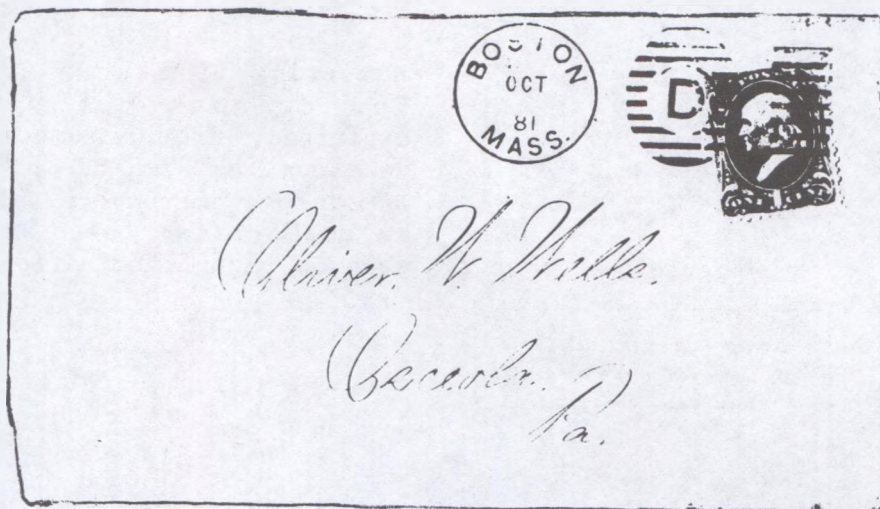 BOSTON
OCT
81
MASS.
D
Oliver. W. Wells.
Osceola.
Pa.